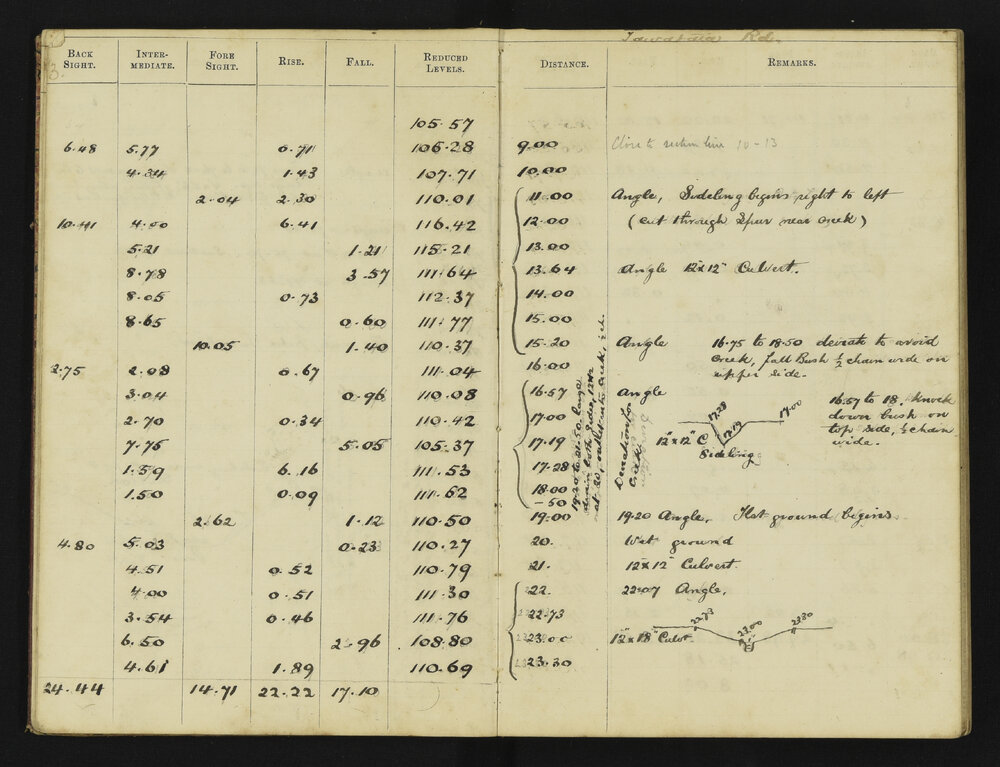 Rd.
BACK SIGHT. INTER-MEDIATE. FORE SIGHT. RISE. FALL. REDUCED LEVELS. DISTANCE. REMARKS.
105.57
6.48 5.77 0.71 106.28 9.00 Close to section line 10-13
4.34 1.43 107.71 10.00
2.04 2.30 110.01 11.00 Angle, Sideling begins right to left
10.41 4.00 6.41 116.42 12.00 (cut through Spur near creek)
5.21 1.21 115.21 13.00
8.78 3.57 111.64 13.64 Angle 12"x12" Culvert.
8.05 0.73 112.37 14.00
8.65 0.60 111.77 15.00
10.05 1.40 110.37 15.20 Angle 16.75 to 18.50 deviate to avoid
creek, fall Bush ½ chain wide on
upper side.
2.75 2.08 0.67 111.04 16.00
3.04 0.96 110.08 16.57 Angle 16.57 to 18. knock
down bush on
top side, ½ chain
wide.
2.70 0.34 110.42 17.00
7.75 5.05 105.37 17.19 12"x12" C
17.28 17.19 17.00
Sideling
1.59 6.16 111.53 17.28
1.50 0.09 111.62 18.00
-50
Deviation for
creek
19.20 to 21.50 large
drain both sides,
at 20, outlet into creek,
2.62 1.12 110.50 19.00 19.20 Angle. Flat ground begins
4.80 5.03 0.23 110.27 20. Wet ground
4.51 0.52 110.79 21. 12"x12" Culvert.
4.00 0.51 111.30 22. 22.07 Angle.
3.54 0.46 111.76 22.73
22.73 23.00 23.30
6.50 2.96 108.80 23.00 12"x18" Culvt.
4.61 1.89 110.69 23.30
24.44 14.71 22.22 17.10